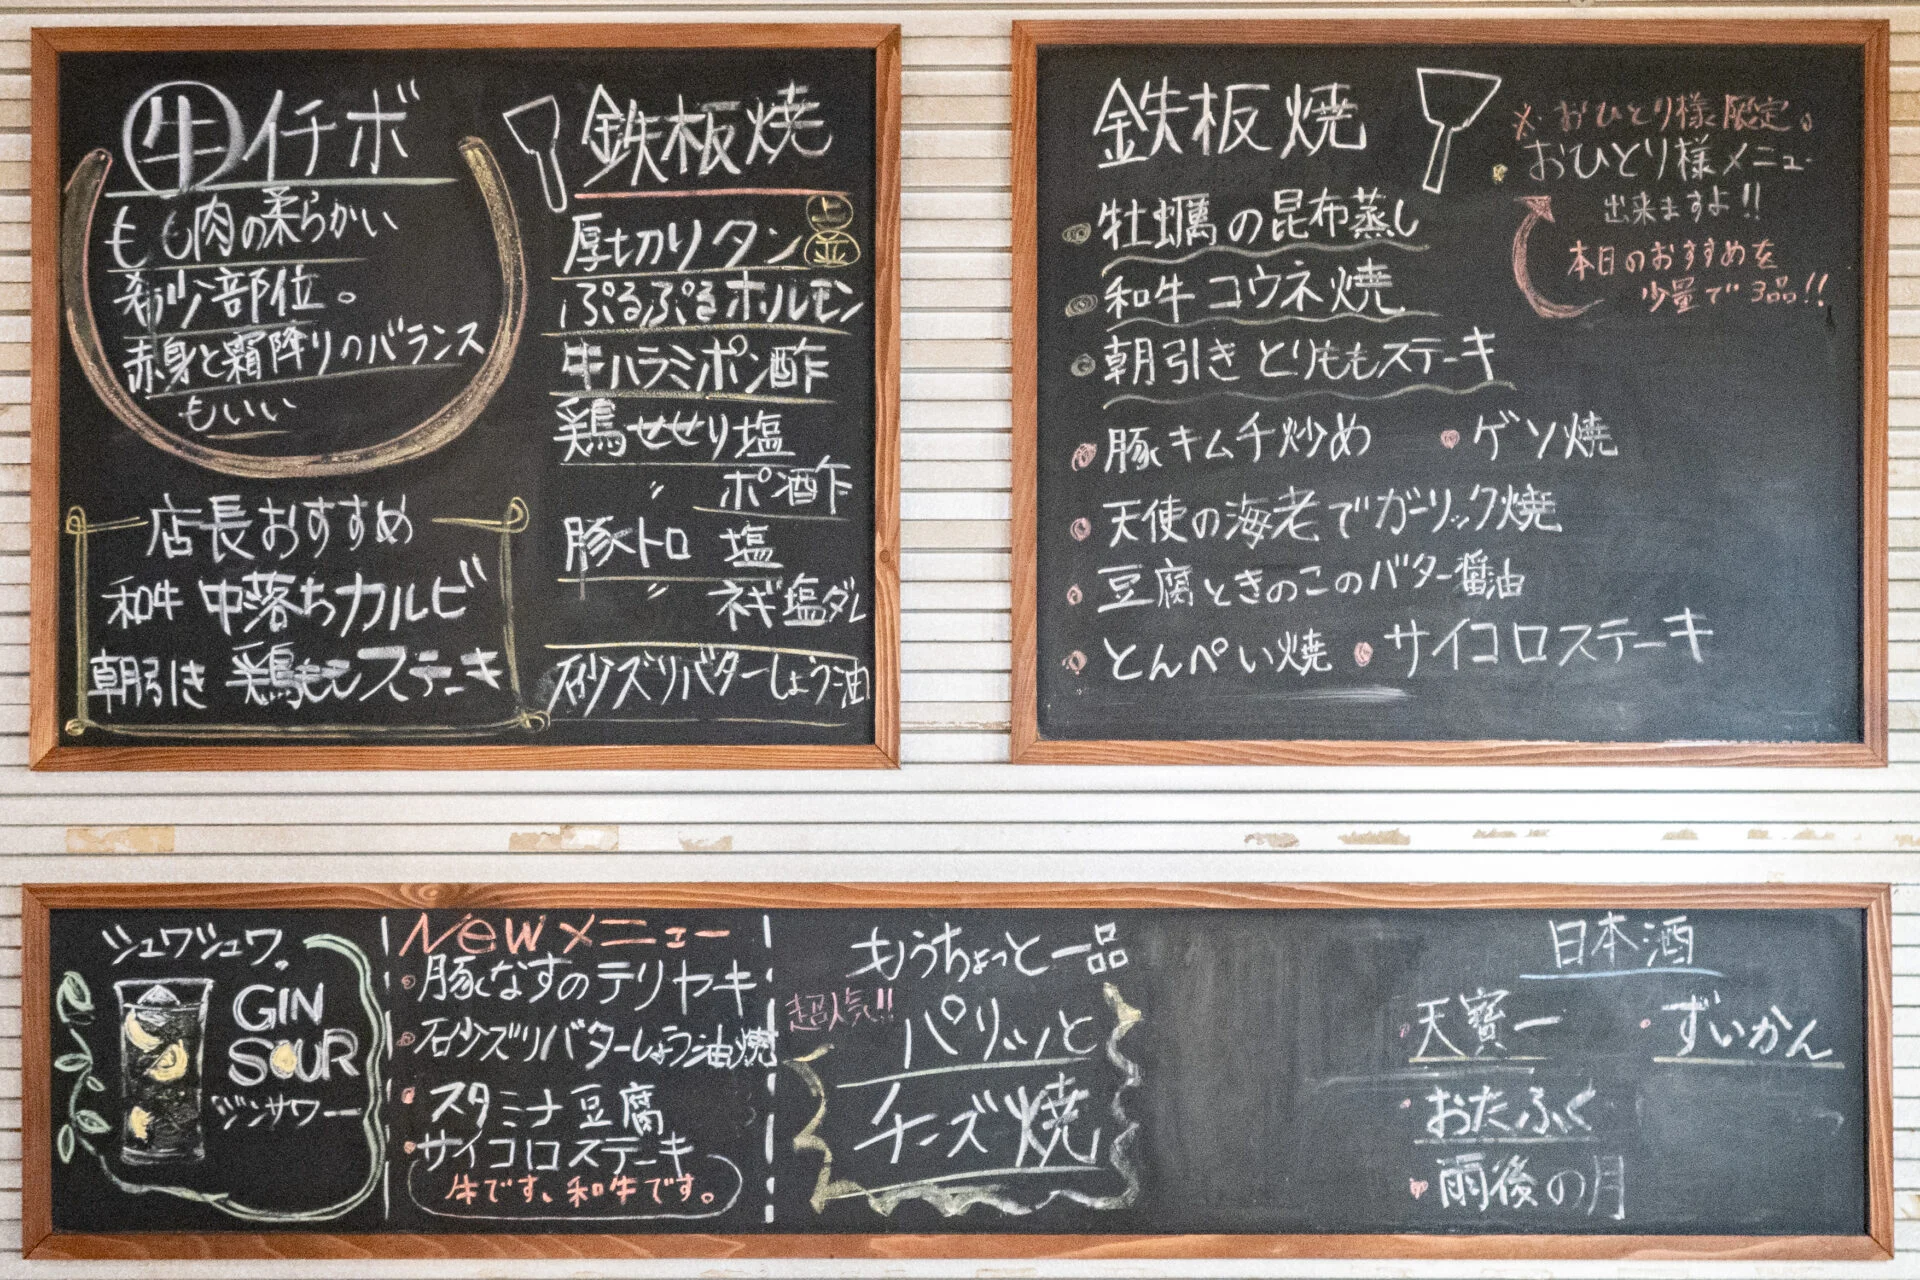 牛イチボ
もも肉の柔らかい
希少部位。
赤身と霜降りのバランス
もいい
店長おすすめ
和牛 中落ちカルビ
朝引き 鶏ももステーキ
鉄板焼
厚切りタン 上 並
ぷるぷるホルモン
牛ハラミポン酢
鶏せせり塩
〃 ポン酢
豚トロ 塩
〃 ネギ塩ダレ
砂ズリバターしょう油
鉄板焼
牡蠣の昆布蒸し
和牛コウネ焼
朝引きとりももステーキ
豚キムチ炒め ・ゲソ焼
天使の海老でガーリック焼
豆腐ときのこのバター醤油
とんぺい焼 ・サイコロステーキ
※おひとり様限定。
おひとり様メニュー
出来ますよ!!
本日のおすすめを
少量で3品!!
シュワシュワ。
GIN
SOUR
ジンサワー
Newメニュー
・豚となすのテリヤキ
・砂ズリバターしょう油焼
・スタミナ豆腐
・サイコロステーキ
牛です、和牛です。
もうちょっと一品
超人気!!
パリッと
チーズ焼
日本酒
・天寳一
・ずいかん
・おたふく
・雨後の月